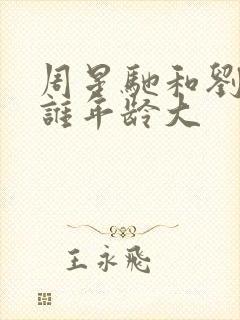 周星馳和劉
誰年齡大
王永飛